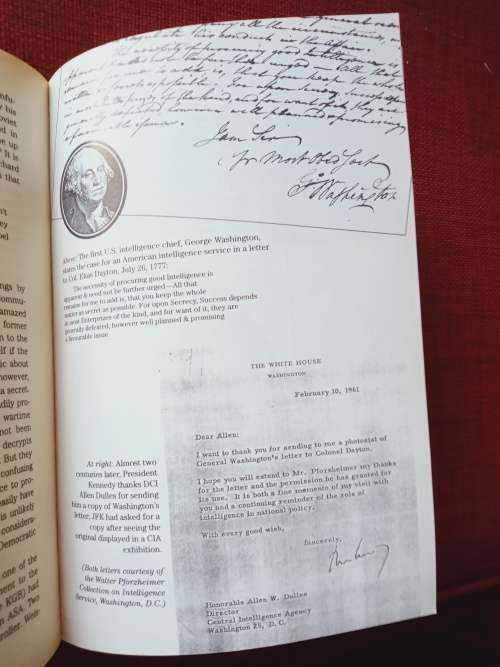 y his
oviet
d in
e up
? It is
chard
s that
ngs by
ommu-
amazed
former
n to the
lf if the
ic about
however,
a secret.
adily pro-
wartime
not been
decrypts
But they
confusing
ce to pro-
easily have
is unlikely
considera-
Democratic
one of the
ment to the
KGB) had
an ASA. Two
all the circumstances,
regulate his conduct in the affair.
The necessity of procuring good Intelligence is
apparent & need not be further urged — All that
remains for me to add is, that you keep the whole
matter as secret as possible. For upon Secrecy, Success
depends in most Enterprises of the kind, and for want of it, they are
generally defeated, however well planned & promising
a favourable issue.
I am Sir
Yr Most Obed Sert
Go Washington
Above: The first U.S. intelligence chief, George Washington,
states the case for an American intelligence service in a letter
to Col. Elias Dayton, July 26, 1777:
The necessity of procuring good Intelligence is
apparent & need not be further urged—All that
remains for me to add is, that you keep the whole
matter as secret as possible. For upon Secrecy, Success depends
in most Enterprises of the kind, and for want of it, they are
generally defeated, however well planned & promising
a favourable issue
THE WHITE HOUSE
WASHINGTON
February 10, 1961
Dear Allen:
I want to thank you for sending to me a photostat of
General Washington's letter to Colonel Dayton.
I hope you will extend to Mr. Pforzheimer my thanks
for the letter and the permission he has granted for
its use. It is both a fine memento of my visit with
you and a continuing reminder of the role of
intelligence in national policy.
With every good wish,
Sincerely,
Honorable Allen W. Dulles
Director
Central Intelligence Agency
Washington 25, D. C.
At right: Almost two
centuries later, President
Kennedy thanks DCI
Allen Dulles for sending
him a copy of Washington's
letter; JFK had asked for a
copy after seeing the
original displayed in a CIA
exhibition.
(Both letters courtesy of
the Walter Pforzheimer
Collection on Intelligence
Service, Washington, D.C.)